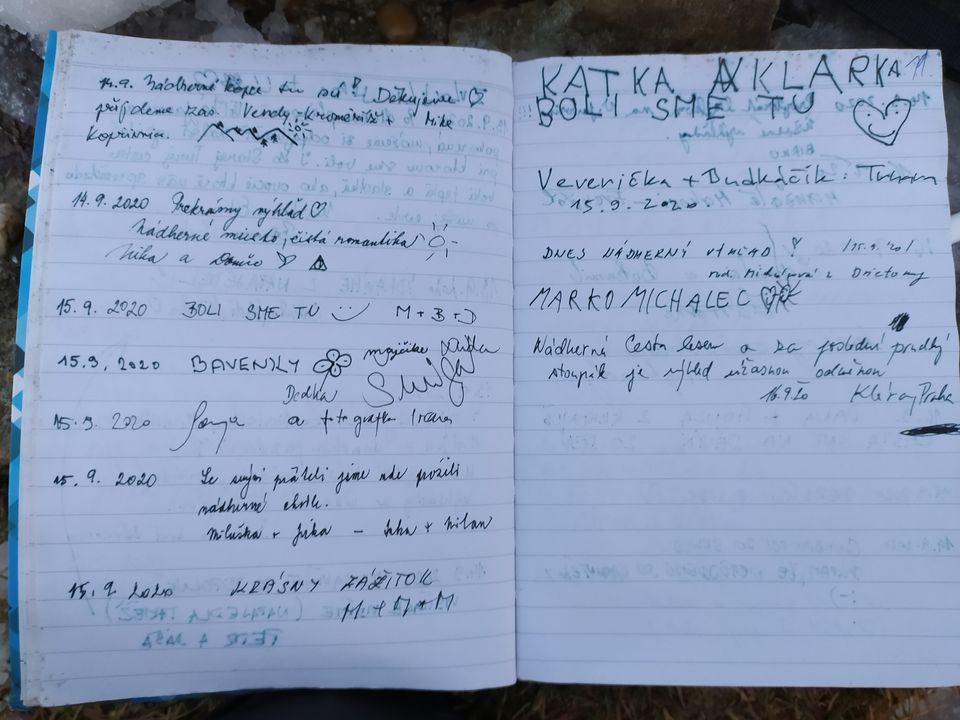 14.9. Nádherné kopce tu sú! Děkujeme
přijdeme zas. Vendy - Kroměříž Mike
Kopřivnice.
14.9.2020 Prekrásny výhľad
Nádherné miesto, čistá romantika
Nika a
15.9.2020 BOLI SME TU M+B+D
15.9.2020
Dedka
15.9.2020 a fotografka
15.9.2020 Se svými přáteli jsme zde prožili
nádherné chvíle.
Miluška + Jirka - + Milan
15.9 2020 KRÁSNY ZÁŽITOK
M+M+M
KATKA A KLARKA 11
BOLI SME TU
Veverička + Budkáčik :
15.9.2020
DNES NÁDHERNÝ VÝHĽAD ! /15.9.20/
rod. z Drietomy
MARKO MICHALEC
Nádherná cesta lesem a za poslední prudký
stoupák je výhled úžasnou odměnou
16.9.20 Praha